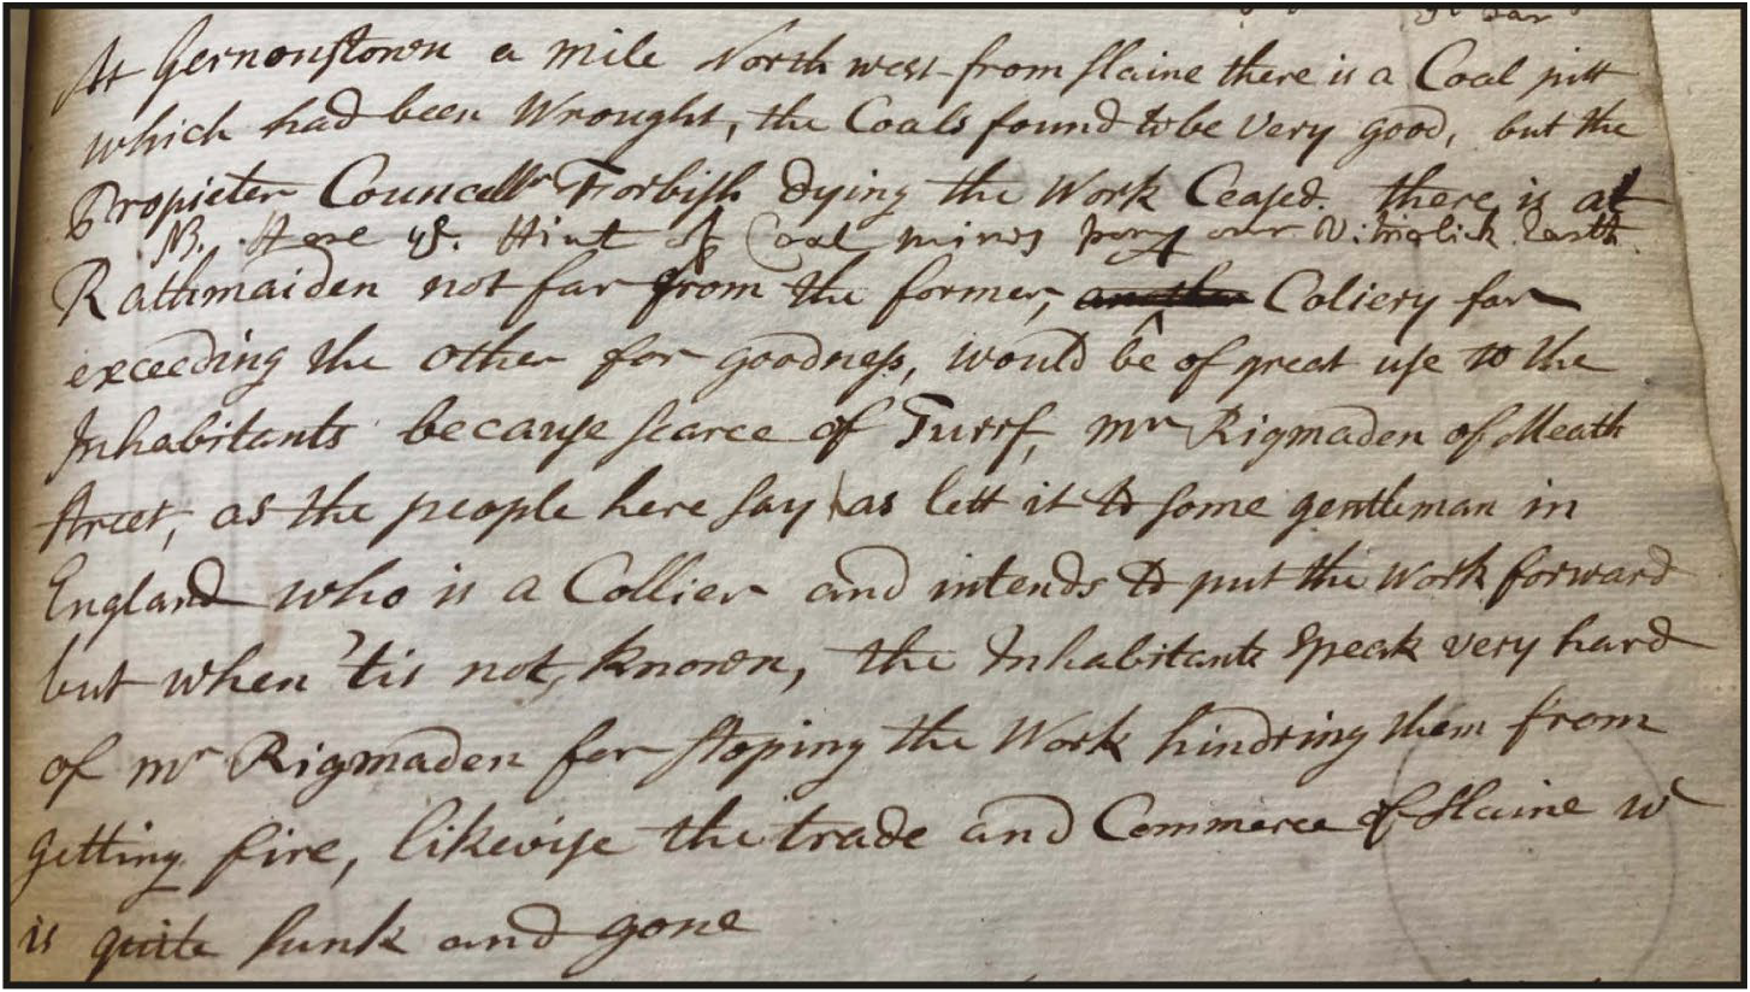 At Gernonstown a mile North west from Slaine there is a Coal pitt
which had been Wrought, the Coals found to be Very good, but the
Propieter Councellr Forbish dying the Work Ceased. there is at
NB. Here ye. Hint of Coal mines our Vitriolick Earth
Rathmaiden not far from the former, another Coliery far
exceeding the other for goodness, would be of great use to the
Inhabitants because scarce of Turrf, Mr Rigmaden of Meath
street, as the people here say has lett it to some gentleman in
England who is a Collier and intends to put the Work forward
but when 'tis not known, the Inhabitants speak very hard
of Mr Rigmaden for stoping the Work hindring them from
getting fire, likewise the trade and Commerce of Slaine wc
is quite sunk and gone